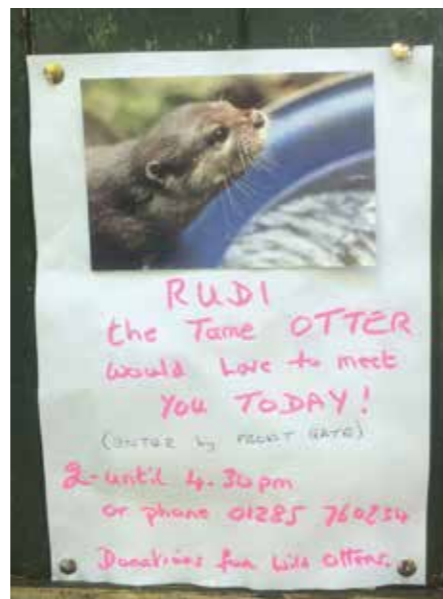 RUDI
the Tame OTTER
would Love to meet
YOU TODAY!
(ENTER by FRONT GATE)
2-until 4.30pm
or phone 01285 760234
Donations for wild otters.